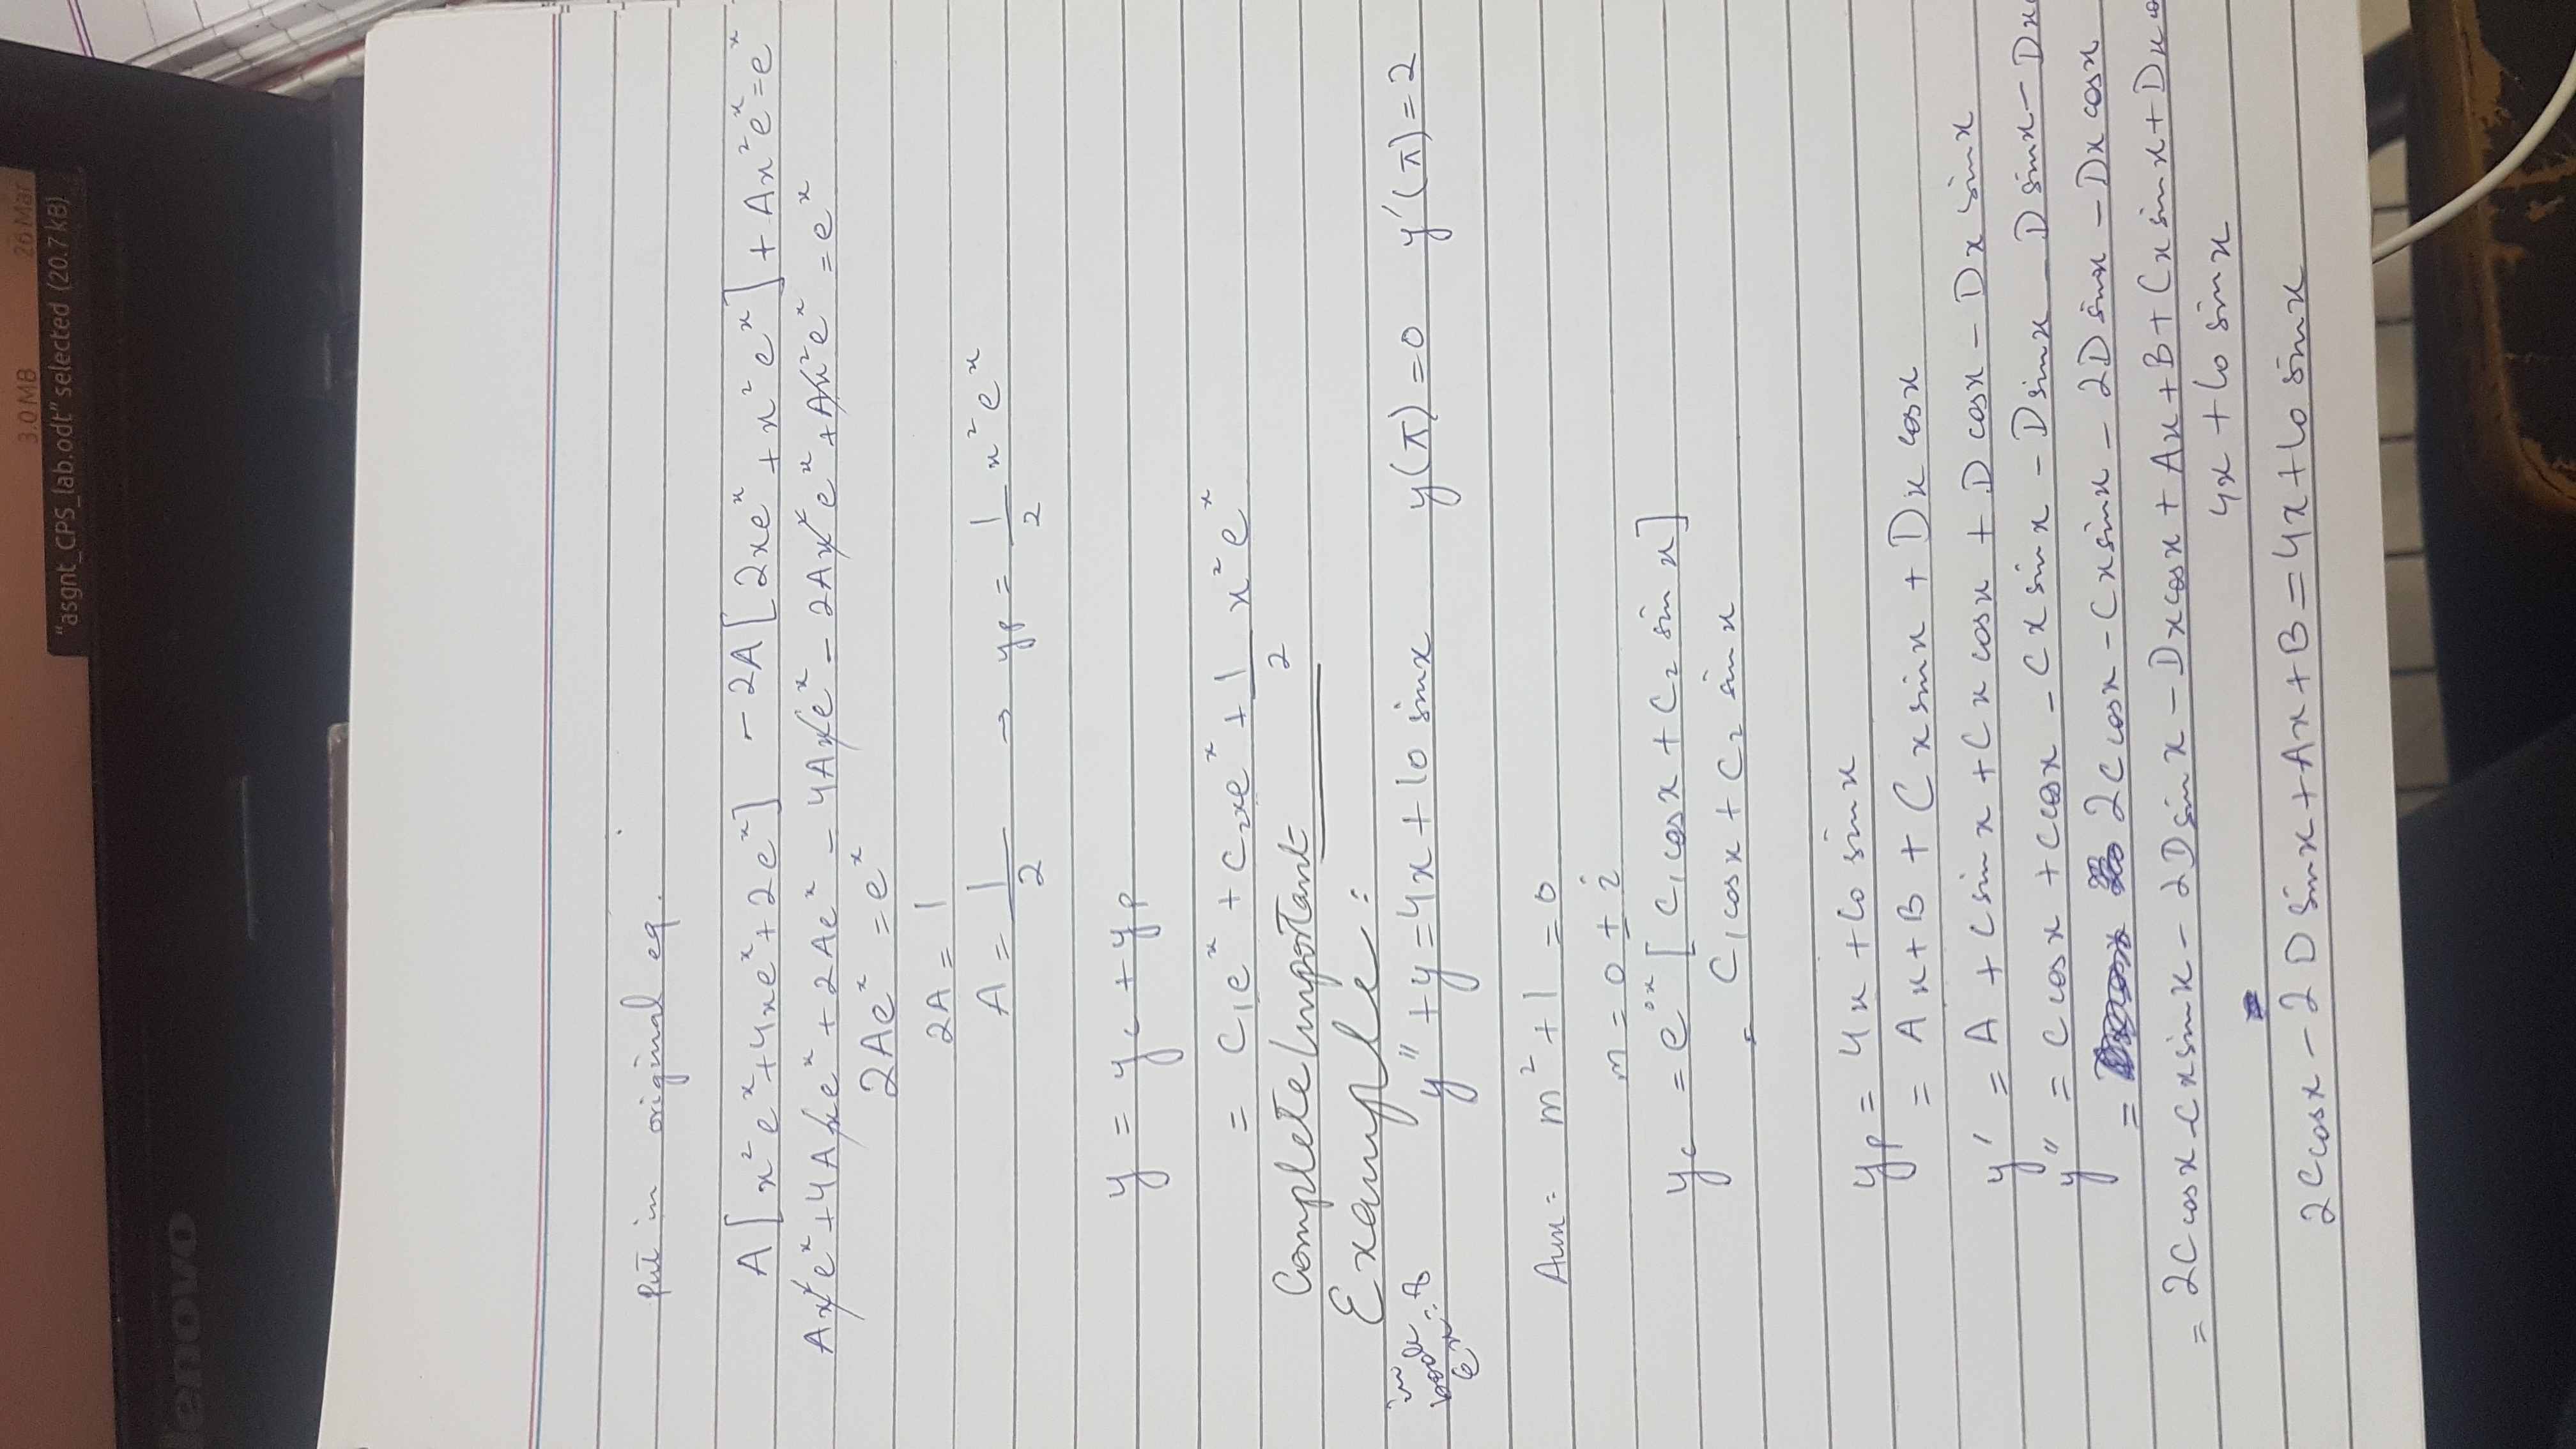 3.0 MB 26 Mar
"asgnt_CPS_lab.odt" selected (20.7 kB)
lenovo
Put in original eq.
A[x²eˣ+4xeˣ+2eˣ] -2A[2xeˣ+x²eˣ]+Ax²eˣ=eˣ
Ax²eˣ+4Axeˣ+2Aeˣ-4Axeˣ-2Ax²eˣ+Ax²eˣ=eˣ
2Aeˣ=eˣ
2A=1
A=1/2 → yp=1/2 x²eˣ
y=yc+yp
=C₁eˣ+C₂xeˣ+1/2 x²eˣ
Complete/Important
Example:
in book Ex:8
y"+y=4x+10 sinx y(π)=0 y'(π)=2
Aux= m²+1=0
m=0±i
yc=e⁰ˣ[C₁cosx+C₂ sin x]
= C₁cosx+C₂ sinx
yp=4x+10 sinx
= Ax+B+Cx sinx+Dx cosx
y'=A+Csinx+Cx cosx+D cosx-Dx sinx
y"=C cosx+Ccosx-Cx sinx-Dsinx-Dsinx-Dx
= 2C cosx-Cx sinx-2D sinx-Dx cosx
= 2C cosx-Cx sinx-2D sinx-Dx cosx+Ax+B+Cx sinx+Dx co
4x+10 sinx
2C cosx-2D sinx+Ax+B=4x+10 sinx